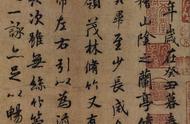 年歲在癸丑暮春
稽山陰之蘭亭脩
畢至少長咸集
領茂林脩竹又有
帶左右引以為流
次雖無絲竹管
一詠亦足以暢